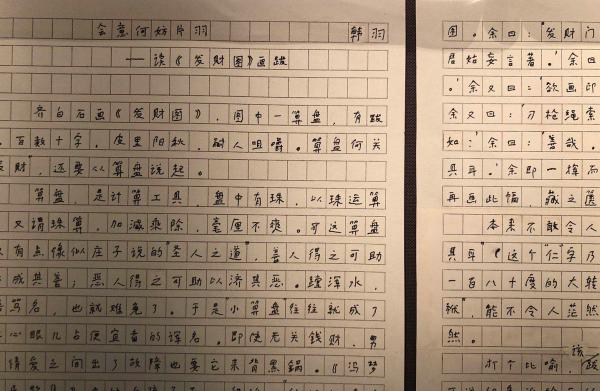 会意何妨片羽
韩羽
——读《发财图》画跋
齐白石画《发财图》，图中一算盘，有跋
百数十字，皮里阳秋，耐人咀嚼。算盘何关
财"，还要从算盘说起。
算盘，是计算工具，盘中有珠，以珠运算
又谓珠算，加减乘除，毫厘不爽。可这算盘
有点像似庄子说的"圣人之道"，善人得之可助
成其善；恶人得之可助以济其恶。蹚浑水，
骂名，也就难免了。于是"小算盘"往往就成了
心眼儿占便宜者的诨名。即使无关钱财，男
情爱之间出了故障也要它来背黑锅。《冯梦
图。余曰："发财门
君始妄言着。'余曰
。'余又曰：'欲画印
余又曰：'刀枪绳索
如：'余曰：'善哉。
具耳。'余即一挥而
再画此幅，藏之箧
本来不敢令人
具耳'《这个"仁"字乃
一百八十度的大转
，能不令人茫然
然。
打个比喻，该